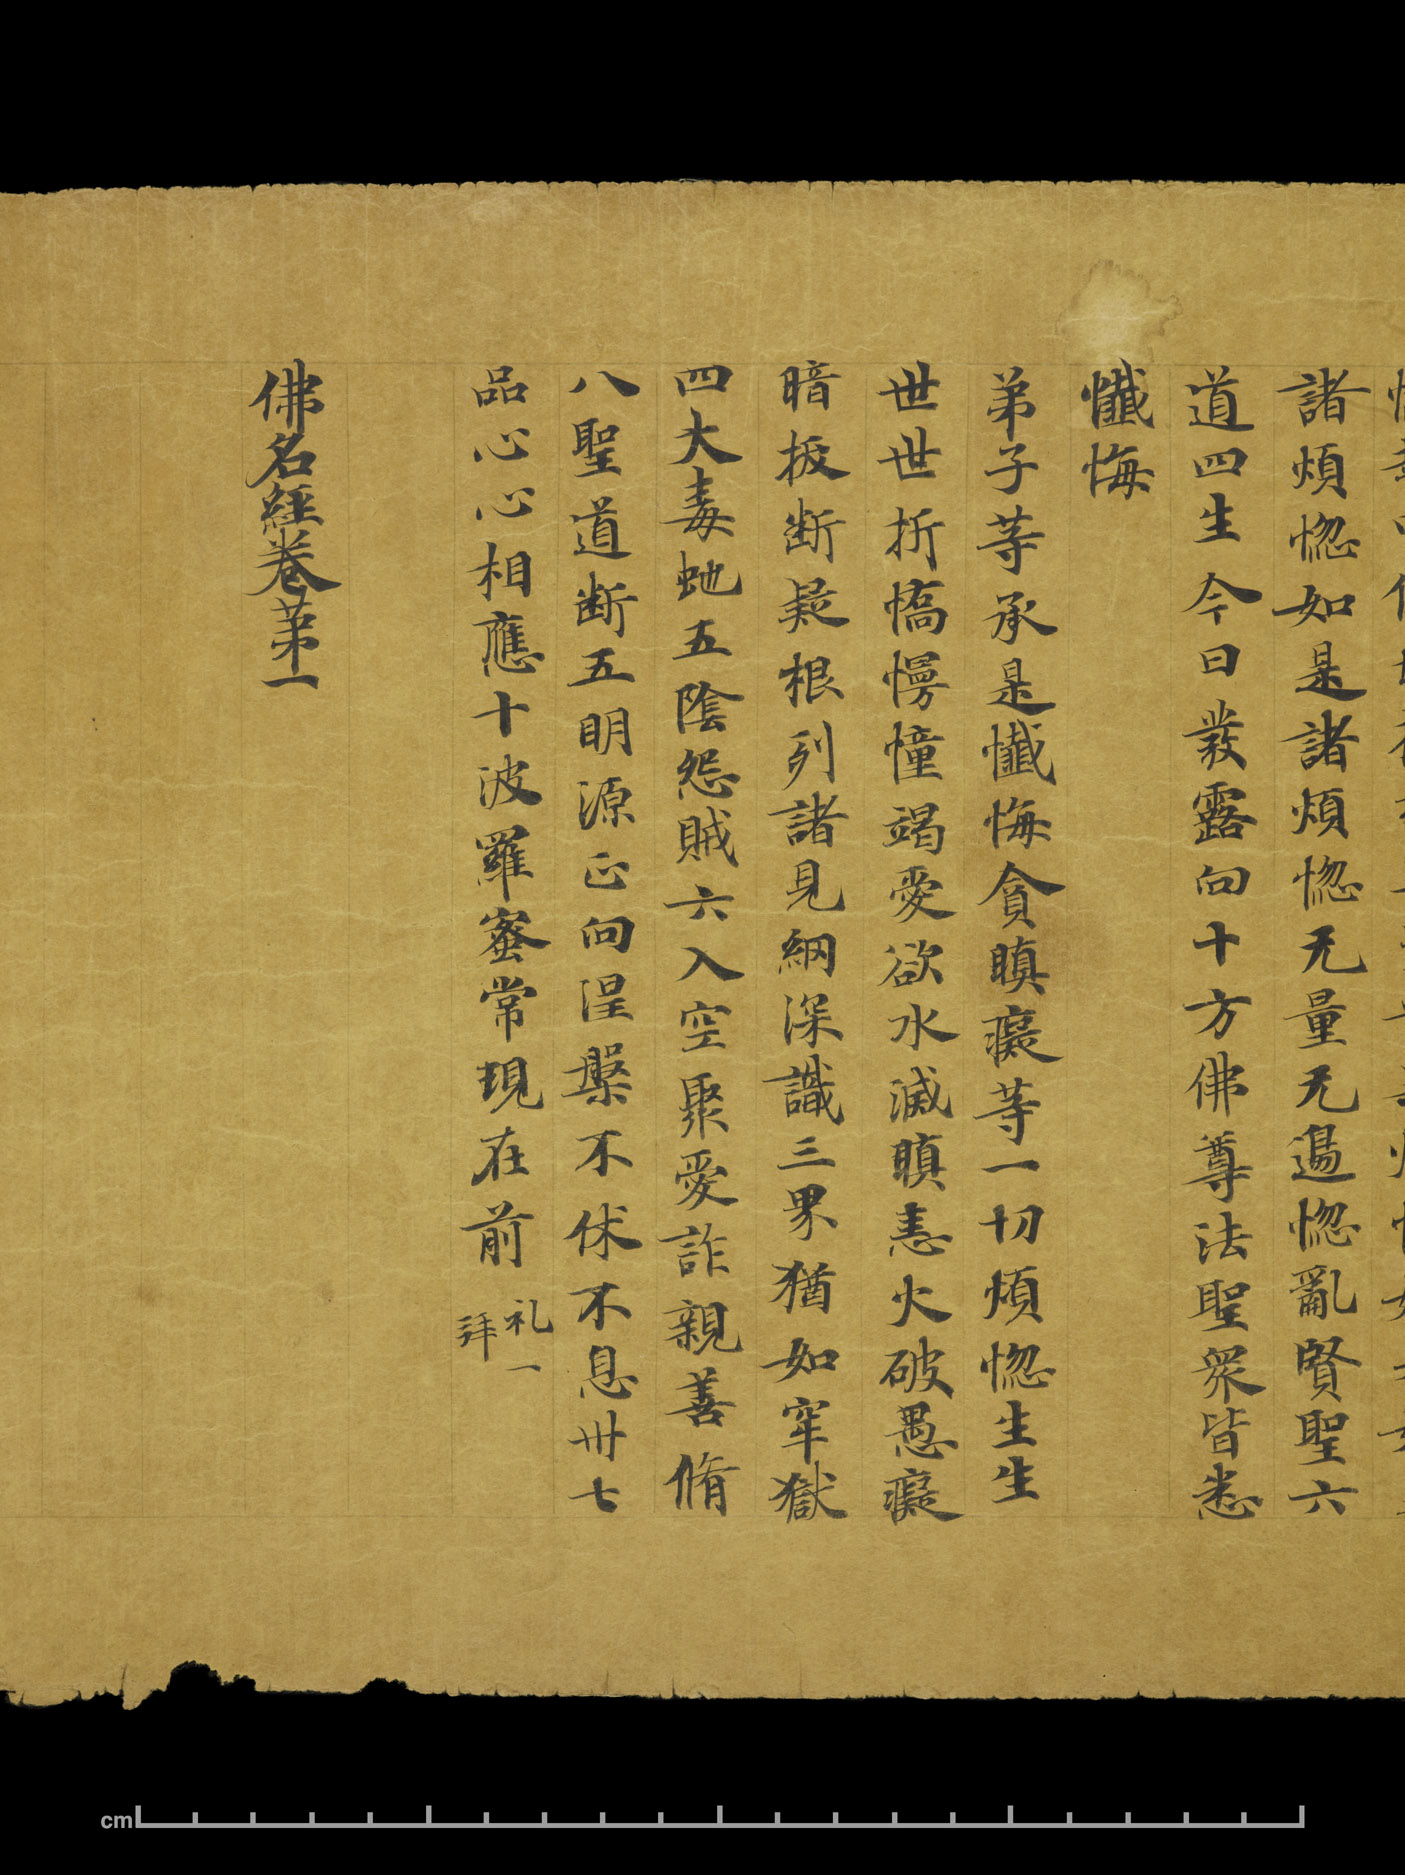 諸煩惚如是諸煩惚无量无邊惚亂賢聖六
道四生今日發露向十方佛尊法聖衆皆悉
懺悔
弟子等承是懺悔貪瞋癡等一切煩惚生生
世世折憍慢幢竭愛欲水滅瞋恚火破愚癡
暗拔斷疑根列諸見網深識三界猶如牢獄
四大毒虵五陰怨賊六入空聚愛詐親善脩
八聖道斷五明源正向涅槃不休不息卅七
品心心相應十波羅蜜常現在前 礼一拜
佛名經卷第一
cm